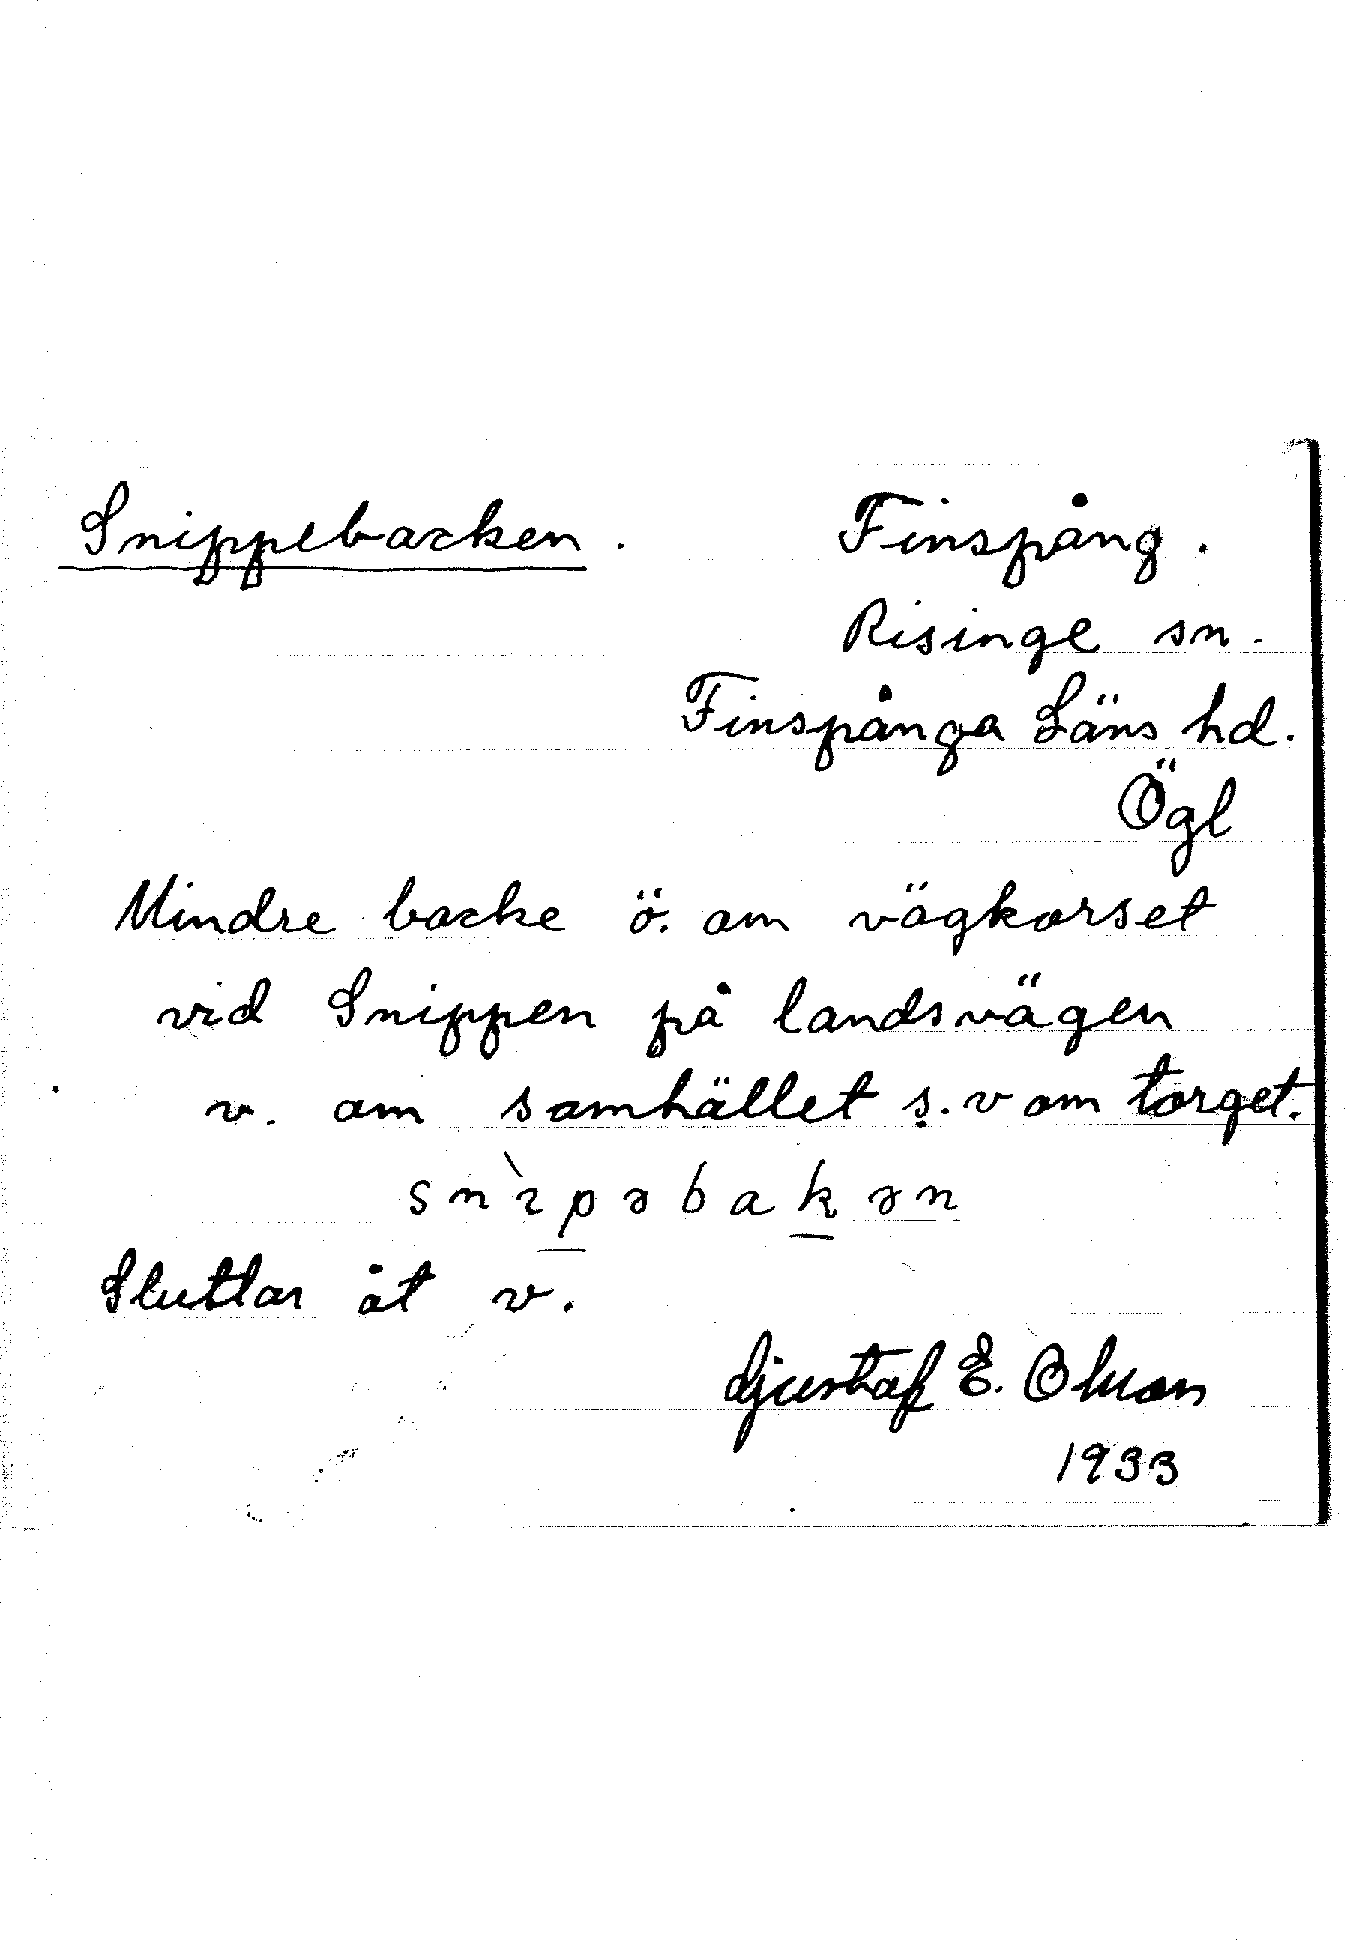 Snippebacken. Finspång.
Risinge sn.
Finspånga Läns hd.
Ögl
Mindre backe ö. om vägkorset
vid Snippen på landsvägen
v. om samhället s.v om torget.
snìpəbakən
Sluttar åt v.
Gustaf E. Olsson
1933